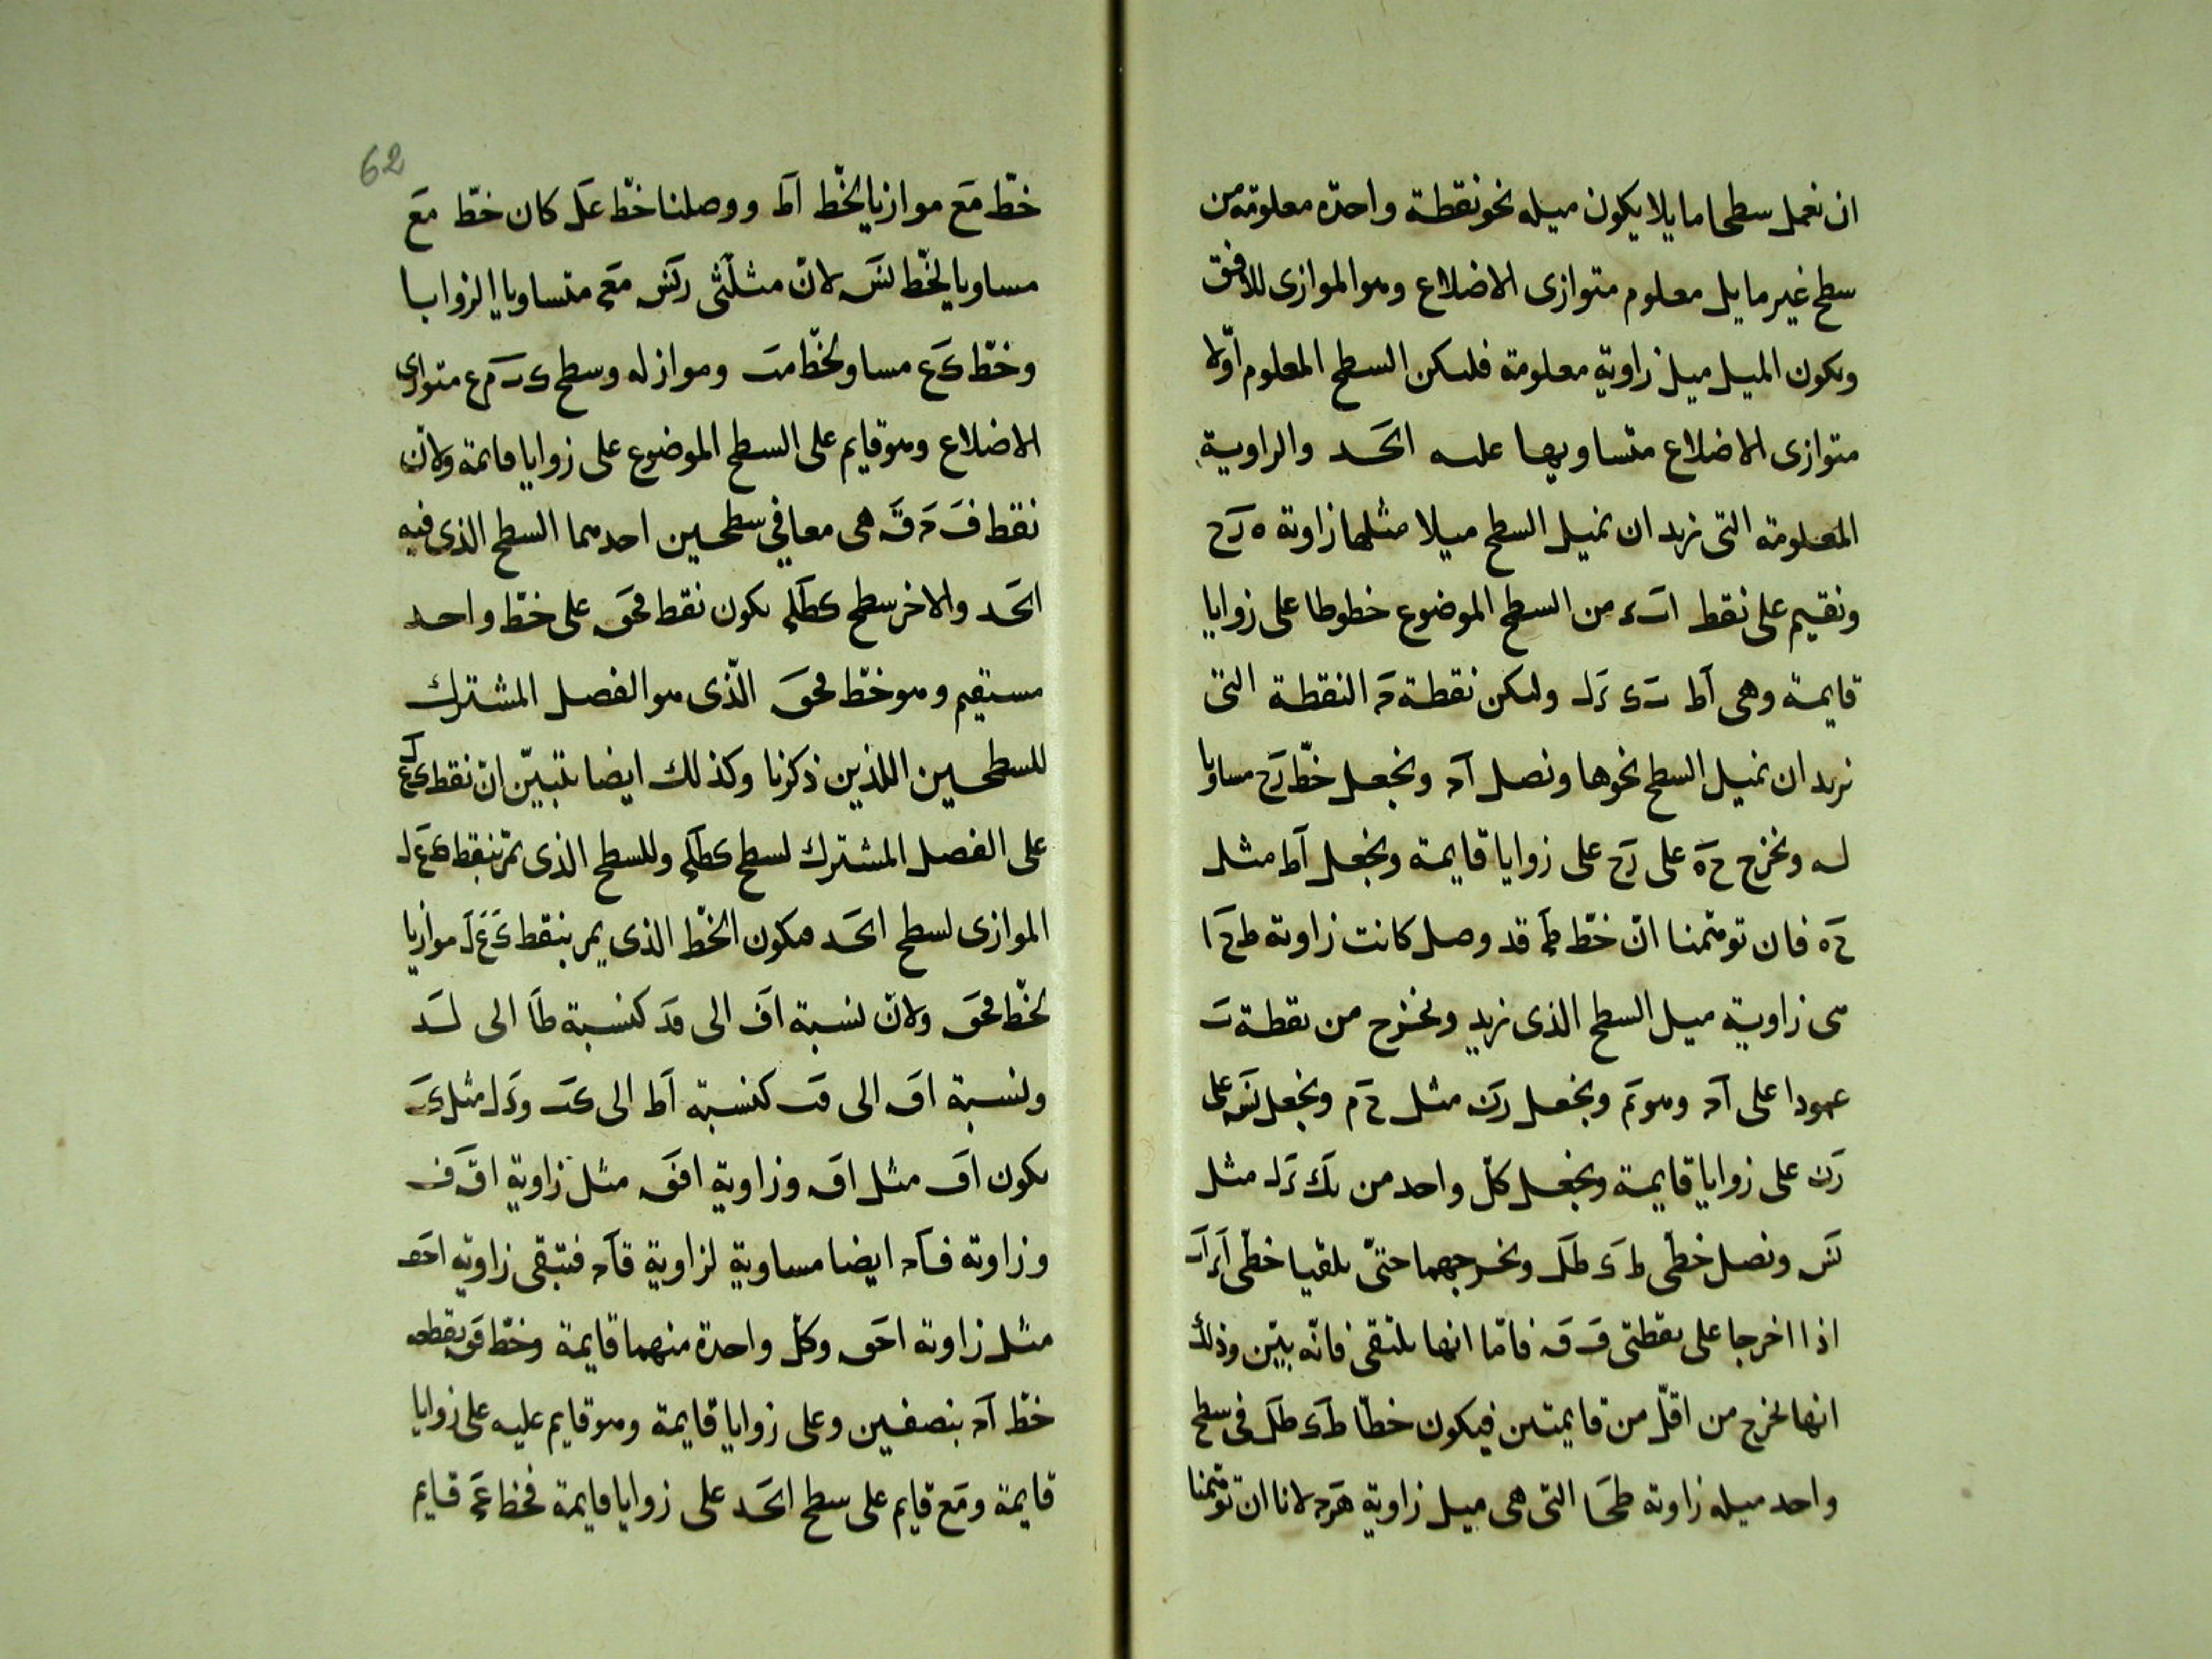 ان نعمل سطحا مايلا يكون ميله نحو نقطة واحدة معلومة من
سطح غير مايل معلوم متوازى الاضلاع وهو الموازى للافق
ويكون الميل ميل زاوية معلومة فليكن السطح المعلوم اوّلا
متوازى الاضلاع متساويها عليه اٮحد والزاوية
المعلومة التى نريد ان نميل السطح ميلا مثلها زاوية ه ز ح
ونقيم على نقط ا ب د من السطح الموضوع خطوطا على زوايا
قايمة وهى اط ب ى د ل وليكن نقطة ح النقطة التى
نريد ان نميل السطح نحوها ونصل ا ح ونجعل خطّ ز ح مساويا
له ونخرج ح ه على ز ح على زوايا قايمة ونجعل اط مثل
ح ه فان توهّمنا انّ خطّ ط ح قد وصل كانت زاوية ط ح ا
هى زاوية ميل السطح الذى نريد ونخرج من نقطة ب
عمودا على ا ح وهو ب م ونجعل ز ن مثل ح م ونجعل ن س على
ز ن على زوايا قايمة ونجعل كلّ واحد من ب ك د ل مثل
ن س ونصل خطّى ط ى ط ل ونخرجهما حتىّ يلقيا خطّى ا د ا ب
اذا اخرجا على نقطتى ف ق فامّا انها تلتقى فانّه بيّن وذلك
انها تخرج من اقلّ من قايمتين فيكون خطّا ط ى ط ل فى سطح
واحد ميله زاوية ط ح ا التى هى ميل زاوية ه ز ح لانا ان توهّمنا
62
خطّ م ع موازيا لخّط اط ووصلنا خطّ ع ل كان خطّ م ع
مساويا لخّط ن س لانّ مثلّثى ز ن س م ع ح متساويا الزوايا
وخطّ ى ع مساو لخطّ م ب وموازله وسطح ى ب م ع متوازى
الاضلاع وهو قايم على السطح الموضوع على زوايا قايمة ولانّ
نقط ف ح ق هى معا في سطحين احدهما السطح الذى فيه
اٮحد والاخر سطح ى ط ل ح يكون نقط ف ح ق على خطّ واحد
مستقيم وهو خطّ ف ح ق الّذى هو الفصل المشترك
للسطحين اللذين ذكرنا وكذلك ايضا يتبيّن انّ نقط ى ع ل
على الفصل المشترك لسطح ى ط ل ح وللسطح الذى يمرّ بنقط ى ع ل
الموازى لسطح اٮحد فيكون الخّط الذى يمر بنقط ى ع ل موازيا
لخّط ف ح ق ولانّ نسبة ا ف الى ف د كنسبة ط ا الى ل د
ونسبة ا ق الى ق ب كنسبة اط الى ى ب و د ل مثل ى ب
يكون ا ف مثل ا ق وزاوية ا ف ق مثل زاوية ا ق ف
وزاوية ف ا ح ايضا مساوية لزاوية ق ا ح فتبقى زاوية ا ح ف
مثل زاوية ا ح ق وكلّ واحدة منهما قايمة وخطّ ف ق يقطع
خطّ ا ح بنصفين وعلى زوايا قايمة وهو قايم عليه على زوايا
قايمة و م ع قايم على سطح اٮحد على زوايا قايمة فخط ع ح قايم